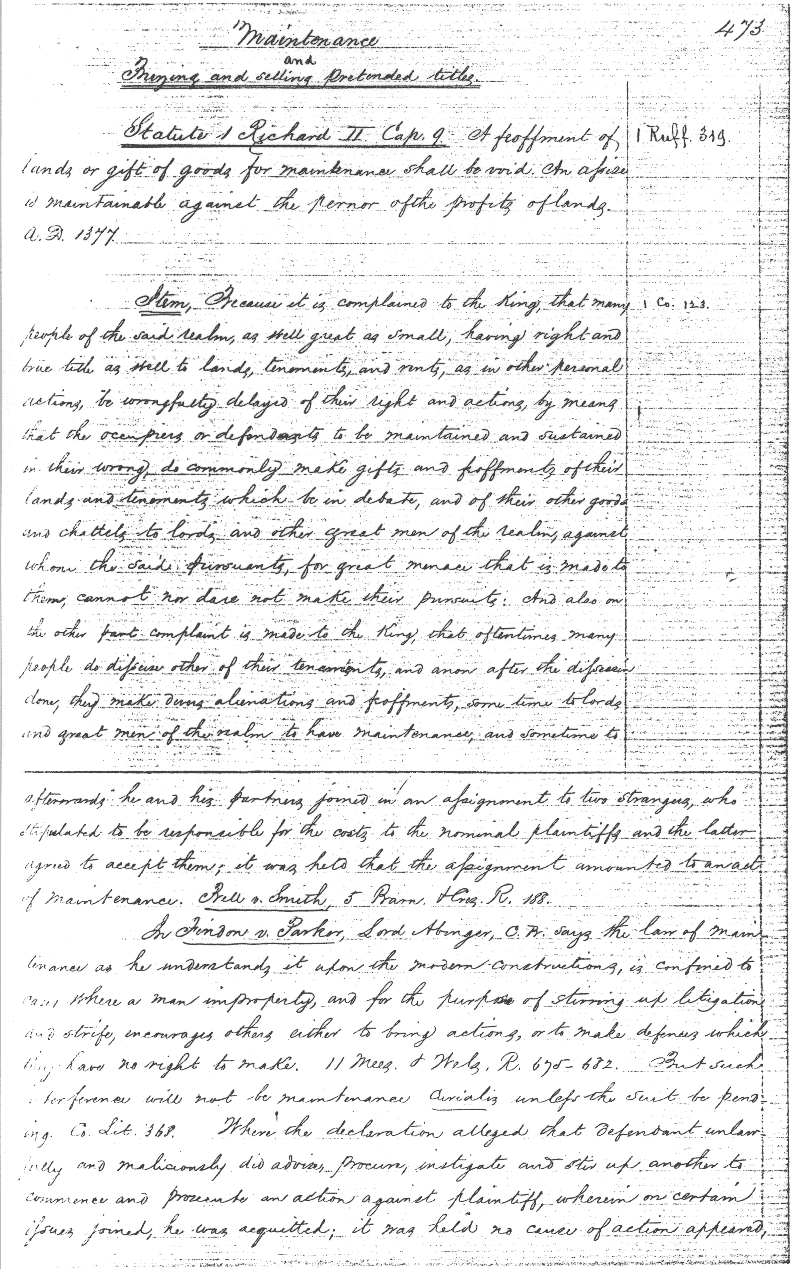 473
Maintenance
and
Buying and selling pretended titles.
Statute 1 Richard II Cap. 9. A feoffment of 1 Ruff. 349.
lands or gift of goods for maintenance shall be void. An assise
is maintainable against the pernor of the profits of lands.
A.D. 1377.
Item, Because it is complained to the King, that many 1 Co. 123.
people of the said realm, as well great as small, having right and
true title as well to lands, tenements, and rents, as in other personal
actions, be wrongfully delayed of their right and actions, by means
that the occupiers or defendants to be maintained and sustained
in their wrong, do commonly make gifts and feoffments of their
lands and tenements which be in debate, and of their other goods
and chattels to lords and other great men of the realm, against
whom the said pursuants, for great menace that is made to
them, cannot nor dare not make their pursuits: And also on
the other part complaint is made to the King, that oftentimes many
people do disseise other of their tenements, and anon after the disseisin
done, they make divers alienations and feoffments, some time to lords
and great men of the realm to have maintenance, and sometime to
afterwards he and his partners joined in an assignment to two strangers, who
stipulated to be responsible for the costs to the nominal plaintiffs and the latter
agreed to accept them; it was held that the assignment amounted to an act
of maintenance. Bell v. Smith, 5 Barn. & Cres. R. 188.
In Findon v. Parker, Lord Abinger, C. B. says the law of main-
tenance as he understands it upon the modern constructions, is confined to
cases where a man improperly, and for the purpose of stirring up litigation
and strife, encourages others either to bring actions, or to make defences which
they have no right to make. 11 Mees. & Wels. R. 675-682. But such
interference will not be maintenance Curialis unless the suit be pend-
ing. Co. Lit. 368. Where the declaration alleged that Defendant unlaw-
fully and maliciously did advise, procure, instigate and stir up another to
commence and prosecute an action against plaintiff, wherein on certain
issues joined, he was acquitted; it was held no cause of action appeared,